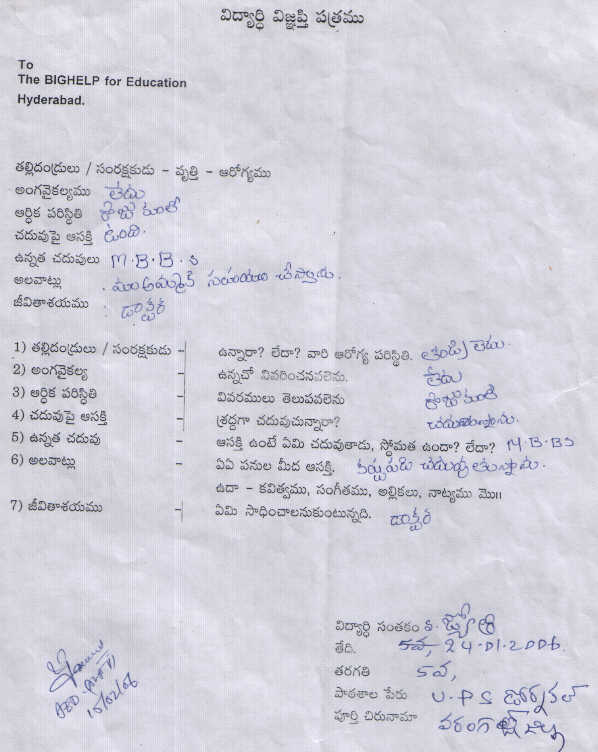 విద్యార్ధి విజ్ఞప్తి పత్రము
To
The BIGHELP for Education
Hyderabad.
తల్లిదండ్రులు / సంరక్షకుడు - వృత్తి - ఆరోగ్యము
అంగవైకల్యము లేదు
ఆర్ధిక పరిస్థితి
చదువుపై ఆసక్తి ఉంది.
ఉన్నత చదువులు M.B.B.S
అలవాట్లు . మా అమ్మకి సహాయం చేస్తాను.
జీవితాశయము : డాక్టర్
1) తల్లిదండ్రులు / సంరక్షకుడు - ఉన్నారా? లేదా? వారి ఆరోగ్య పరిస్థితి. తండ్రి లేడు.
2) అంగవైకల్య - ఉన్నచో వివరించనవలెను. లేదు
3) ఆర్ధిక పరిస్థితి - వివరములు తెలుపవలెను
4) చదువుపై ఆసక్తి - శ్రద్దగా చదువుచున్నారా?
5) ఉన్నత చదువు - ఆసక్తి ఉంటే ఏమి చదువుతాడు, స్ధోమత ఉందా? లేదా? M.B.BS
6) అలవాట్లు - ఏఏ పనుల మీద ఆసక్తి.
ఉదా - కవిత్వము, సంగీతము, అల్లికలు, నాట్యము మొ॥
7) జీవితాశయము - ఏమి సాధించాలనుకుంటున్నది. డాక్టర్
విద్యార్ధి సంతకం వి. జ్యోతి
తేది. 5వ, 24.01.2006.
తరగతి 5వ,
పాఠశాల పేరు U.P.S డోర్నకల్
పూర్తి చిరునామా వరంగల్ జిల్లా
15/02/06